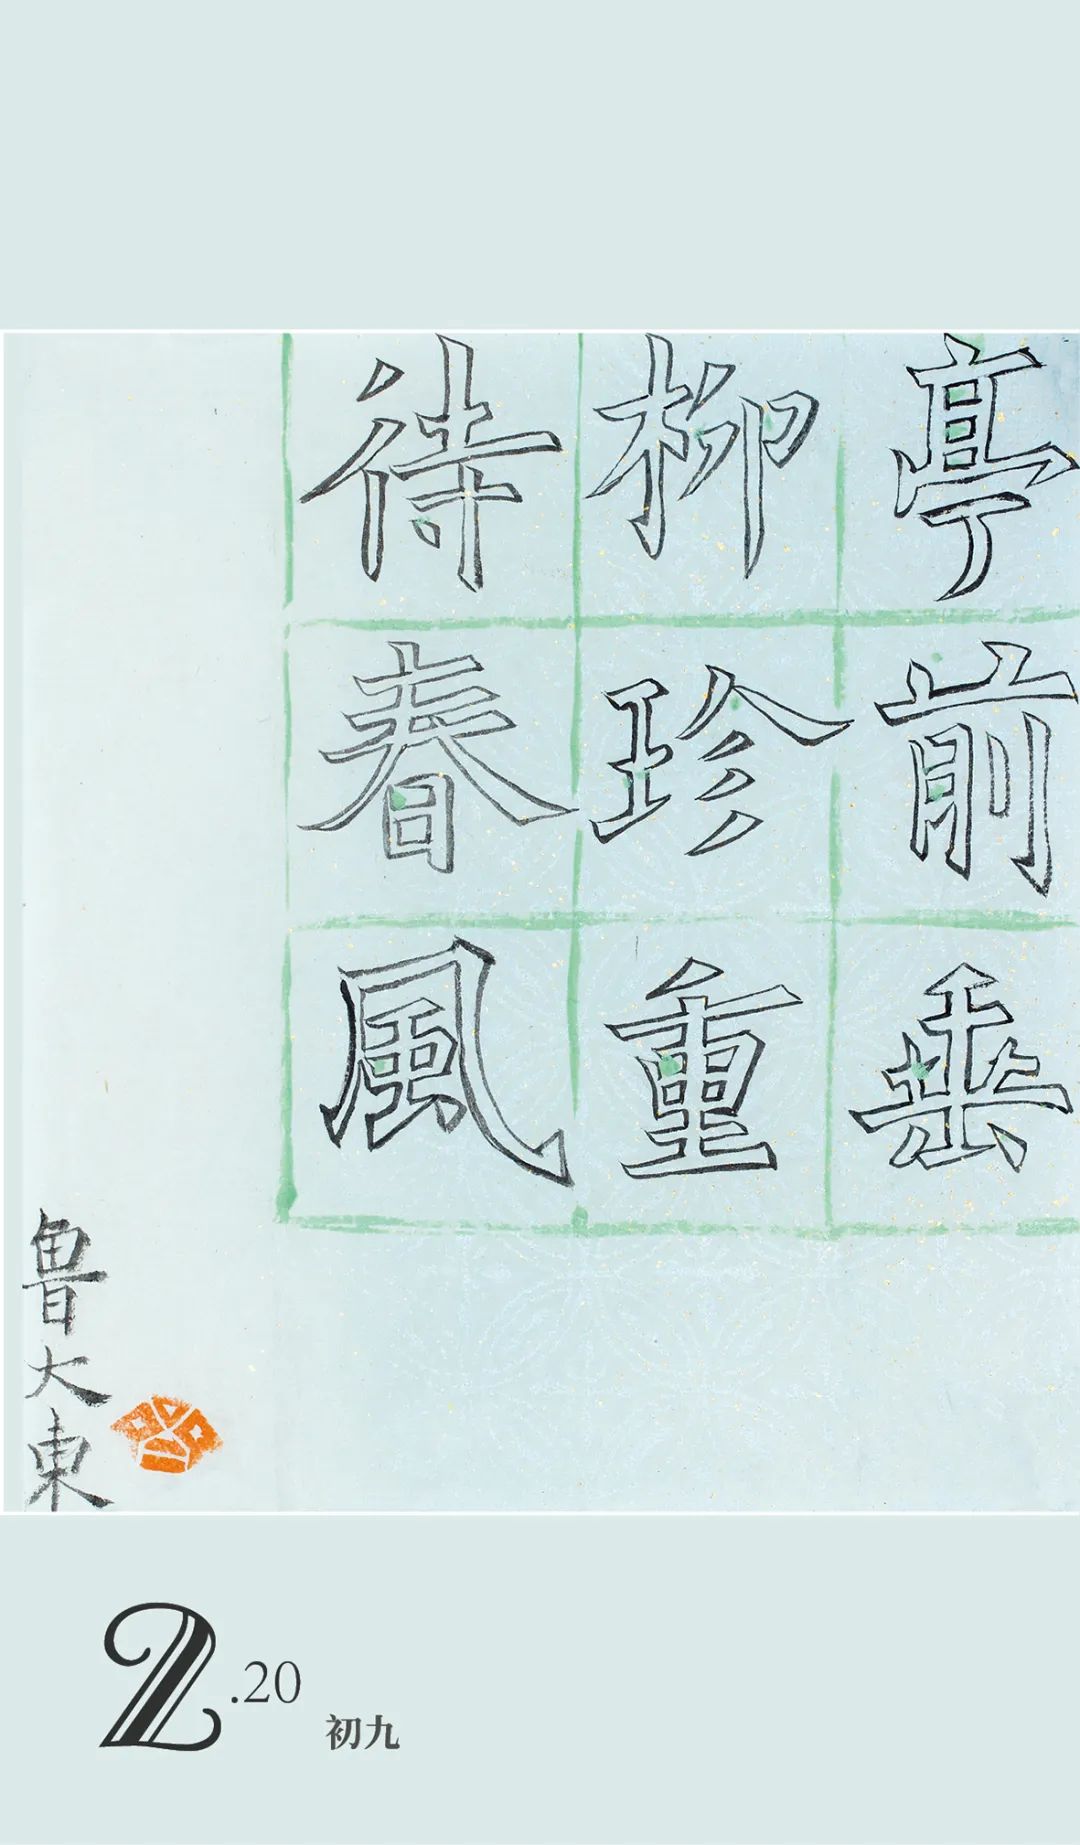 亭前垂
柳珍重
待春風
魯大東
2.20
初九